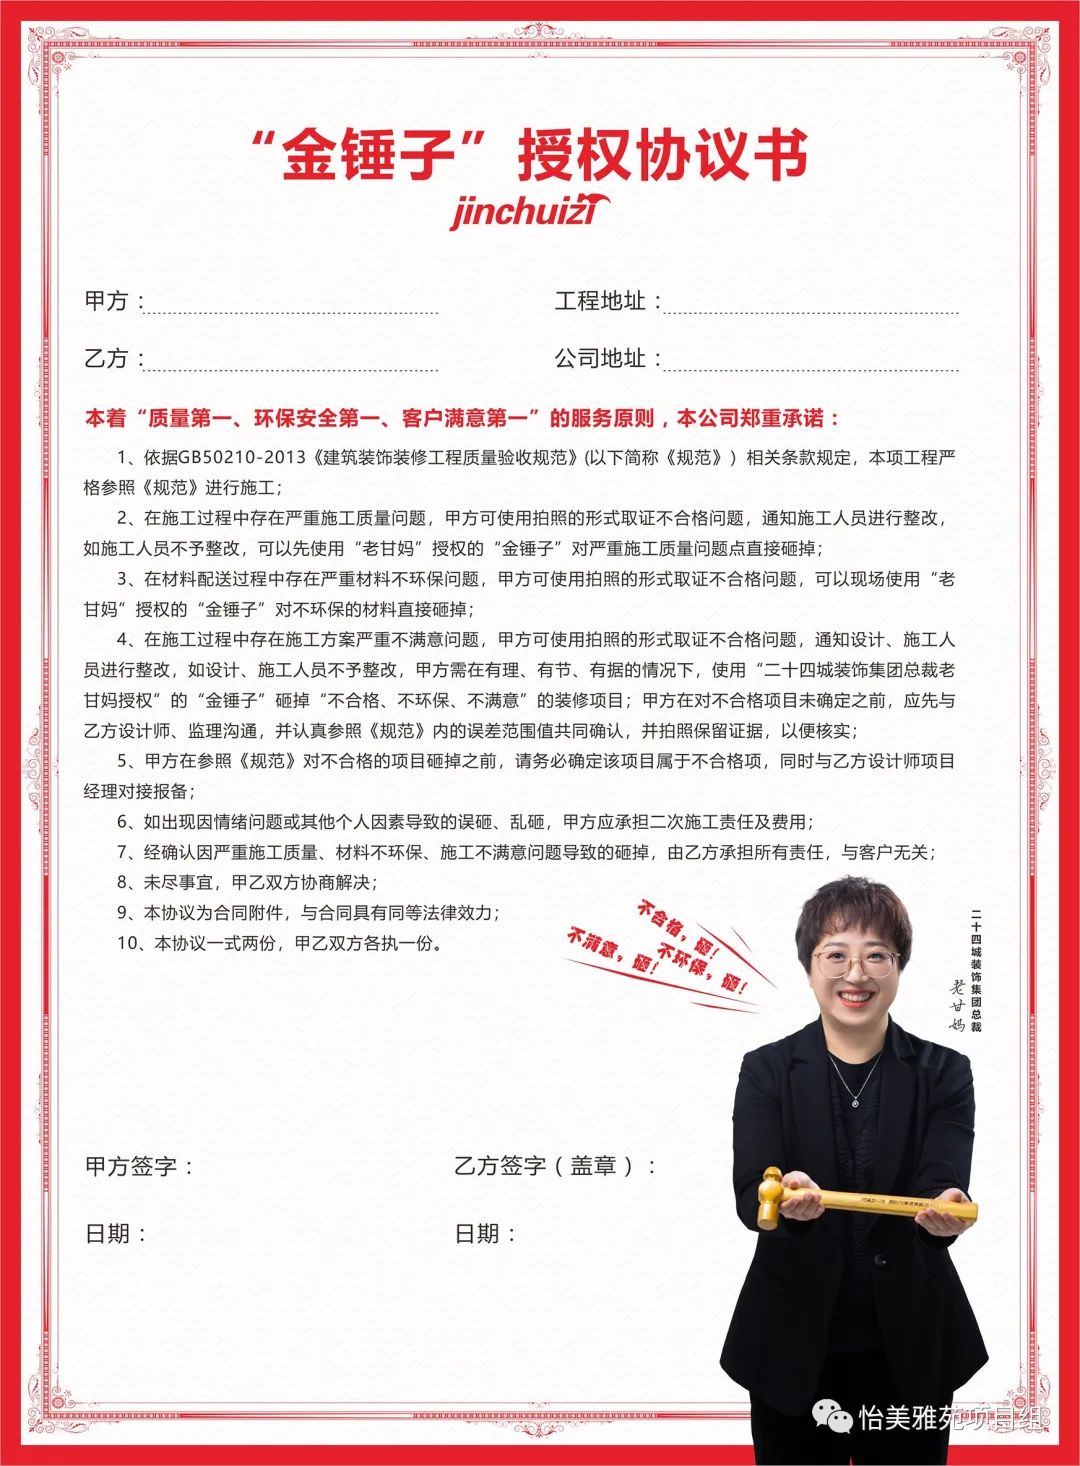 “金锤子”授权协议书
jinchuizi
甲方：
工程地址：
乙方：
公司地址：
本着“质量第一、环保安全第一、客户满意第一”的服务原则，本公司郑重承诺：
1、依据GB50210-2013《建筑装饰装修工程质量验收规范》(以下简称《规范》）相关条款规定，本项工程严
格参照《规范》进行施工；
2、在施工过程中存在严重施工质量问题，甲方可使用拍照的形式取证不合格问题，通知施工人员进行整改，
如施工人员不予整改，可以先使用“老甘妈”授权的“金锤子”对严重施工质量问题点直接砸掉；
3、在材料配送过程中存在严重材料不环保问题，甲方可使用拍照的形式取证不合格问题，可以现场使用“老
甘妈”授权的“金锤子”对不环保的材料直接砸掉；
4、在施工过程中存在施工方案严重不满意问题，甲方可使用拍照的形式取证不合格问题，通知设计、施工人
员进行整改，如设计、施工人员不予整改，甲方需在有理、有节、有据的情况下，使用“二十四城装饰集团总裁老
甘妈授权”的“金锤子”砸掉“不合格、不环保、不满意”的装修项目；甲方在对不合格项目未确定之前，应先与
乙方设计师、监理沟通，并认真参照《规范》内的误差范围值共同确认，并拍照保留证据，以便核实；
5、甲方在参照《规范》对不合格的项目砸掉之前，请务必确定该项目属于不合格项，同时与乙方设计师项目
经理对接报备；
6、如出现因情绪问题或其他个人因素导致的误砸、乱砸，甲方应承担二次施工责任及费用；
7、经确认因严重施工质量、材料不环保、施工不满意问题导致的砸掉，由乙方承担所有责任，与客户无关；
8、未尽事宜，甲乙双方协商解决；
9、本协议为合同附件，与合同具有同等法律效力；
10、本协议一式两份，甲乙双方各执一份。
不合格，砸！
不环保，砸！
不满意，砸！
二十四城装饰集团总裁
老甘妈
甲方签字：
乙方签字（盖章）：
日期：
日期：
怡美雅苑项目组